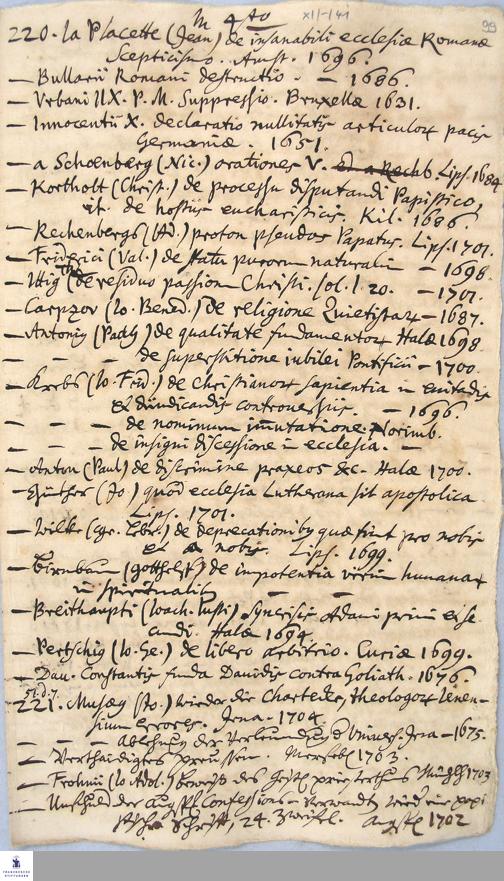 In 4to
XI/-/41
99
220. la Placette (Jean) de insanabili ecclesiæ Romanæ
Scepticismo. Amst. 1696.
— Bullarii Romani destructio. — 1686.
— Urbani IIX. P. M. Suppressio. Bruxellæ 1631.
— Innocentii X. declaratio nullitatis articulor pacis
Germaniæ. 1651.
— a Schœnberg (Nic.) orationes V. Lips. 1684
— Kortholt (Christ.) de processu disputandi Papistico,
it. de hostiis eucharisticis. Kil. 1686.
— Rechenbergs (Ad.) proton pseudos Papatus. Lips. 1701.
— Friderici (Val.) de statu purorum naturalium — 1698.
— Ittig (Th) de residuo passionum Christi. Col. 1. 20. — 1701.
— Carpzov (Jo. Bened.) de religione Quietistar — 1687.
— Antonij (Pauli) de qualitate fundamentor Halæ 1698.
— — — de superstitione iubilei Pontificii — 1700.
— Krebs (Jo. Frid.) de Christianor sapientia in evitandis
et diiudicandis controversiis. — 1696.
— — — de nominum immutatione. Norimb.
— — — de insigni discessione in ecclesia. —
— Anton (Paul) de discrimine praxeos &c. Halæ 1700.
— Günther (Jo.) quod ecclesia Lutherana sit apostolica
Lips. 1701.
— Wilke de deprecationibus quæ fiunt pro nobis
et a nobis. Lips. 1699.
— Birnbaum (Gotthelf) de impotentia virium humanar
in spiritualibus — —
— Breithaupti (Joach. Justi) Syncrisis Adami primi et se
cundi. Halæ 1694.
— Pertschig (Jo. Ge.) de libero arbitrio. Curiæ 1699.
— Dav. Constantis funda Davidis contra Goliath. 1676.
221. Musæy (Jo.) wieder die Chartecke, theologor Jenen-
sium errores. Jena. 1704.
— — — Ablehnung der Verleumdung Univers. Jena — 1675.
— Verthädigtes Preussen. Merseb 1703.
— Fromm (Jo. Adol.) beweiß des Geistl priesterthums 1703
— Unschuld der Augsp. Confessions-verwandten wird
Schrifft, 24. Zweifel. Augsp 1702
FRANCKESCHE
STIFTUNGEN